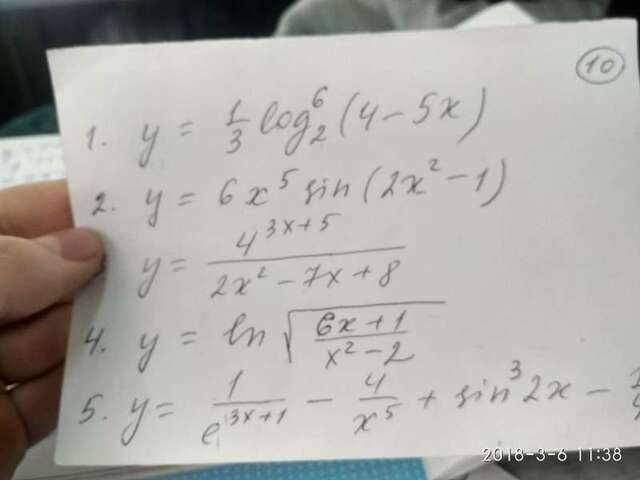 10
1. y = 1/3 log₂⁶(4 - 5x)
2. y = 6x⁵ sin(2x² - 1)
y = 4^(3x+5) / (2x² - 7x + 8)
4. y = ln √((6x+1)/(x² - 2))
5. y = 1/e^(3x+1) - 4/x⁵ + sin³2x -
2018-3-6 11:38